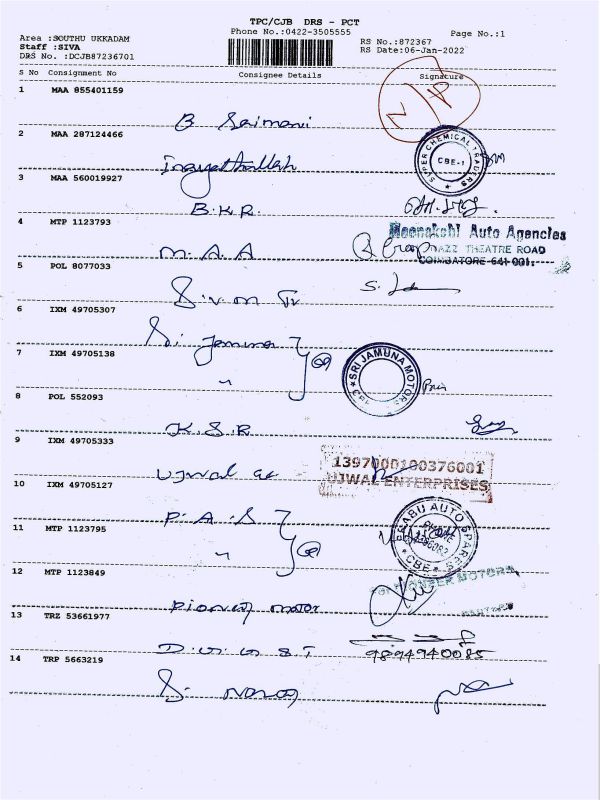 TPC/CJB DRS - PCT
Phone No.:0422-3505555
Page No.:1
Area :SOUTHU UKKADAM
Staff :SIVA
DRS No. :DCJB87236701
RS No.:872367
RS Date:06-Jan-2022
S No Consignment No Consignee Details Signature
1 MAA 855401159
N/P
B Saimani
2 MAA 287124466
SUPER CHEMICAL TRADERS CBE-1
Inayathullah
3 MAA 560019927
B.K.R.
4 MTP 1123793
Meenakshi Auto Agencies
NAZZ THEATRE ROAD
COIMBATORE-641 001.
M.A.A
5 POL 8077033
S.V.M Tr
6 IXM 49705307
Sri Jamuna
7 IXM 49705138
SRI JAMUNA MOTORS
"
8 POL 552093
K.S.R
9 IXM 49705333
1397000100376001
UJWAL ENTERPRISES
Ujwal
10 IXM 49705127
P.A.S
11 MTP 1123795
PRABU AUTO SPARES CBE
"
12 MTP 1123849
PIONEER MOTORS
Pioneer motor
13 TRZ 53661977
9894940085
14 TRP 5663219